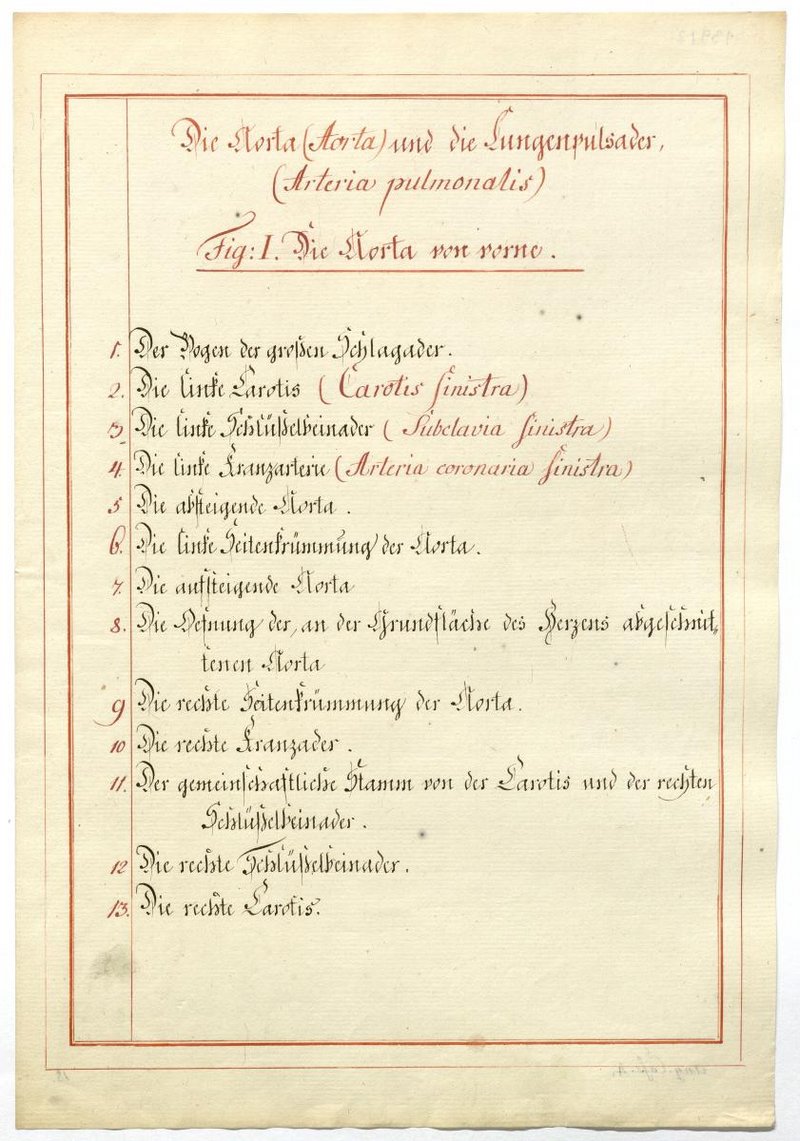 Die Aorta (Aorta) und die Lungenpulsader,
(Arteria pulmonalis)
Fig: I. Die Aorta von vorne.
1. Der Bogen der großen Schlagader.
2. Die linke Carotis (Carotis sinistra)
3. Die linke Schlüßelbeinader (Subclavia sinistra)
4. Die linke Kranzarterie (Arteria coronaria sinistra)
5 Die absteigende Aorta.
6. Die linke Seitenkrümmung der Aorta.
7. Die aufsteigende Aorta
8. Die Oefnung der, an der Grundfläche des Herzens abgeschnit-
tenen Aorta
9 Die rechte Seitenkrümmung der Aorta.
10 Die rechte Kranzader.
11. Der gemeinschaftliche Stamm von der Carotis und der rechten
Schlüßelbeinader.
12 Die rechte Schlüßelbeinader.
13. Die rechte Carotis.